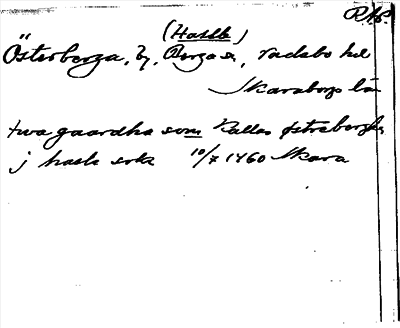 RAP
(Hassle)
Österberga, by, Berga sn, Vadsbo hd
Skaraborgs län
twa gaardha som kallas østrebergha
j hasle sokn 10/7 1460 Skara